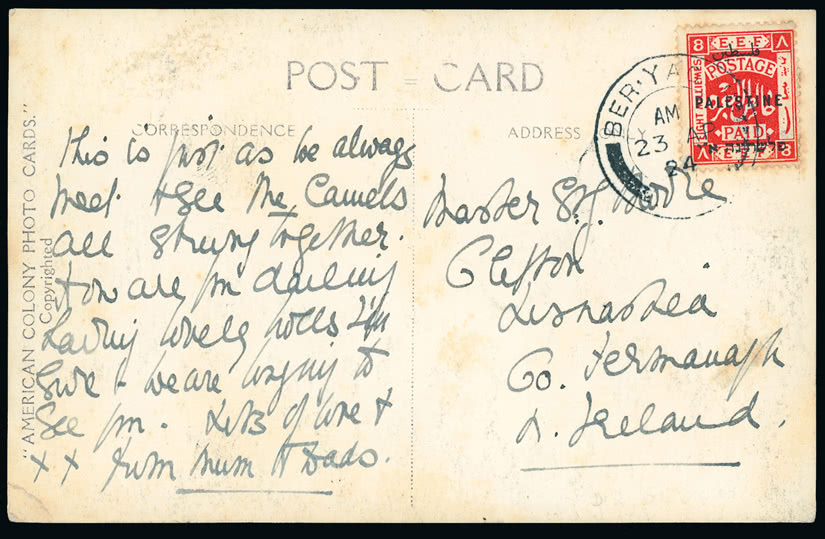 POST CARD
CORRESPONDENCE
This is just as we always
meet & see the Camels
all strung together.
How are you darling
having lovely
sure - we are longing to
see you. Lots of love &
x x from Mum & Dads.
ADDRESS
Master S.
Clifton
Lisnaskea
Co. Fermanagh
N. Ireland.
"AMERICAN COLONY PHOTO CARDS."
Copyrighted
BER·YA
AM
23 AP
24
8 E.E.F. ٨
POSTAGE
PALESTINE
PAID
٨ 8